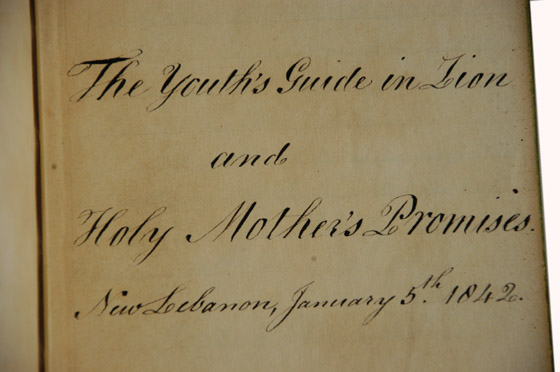 The Youth's Guide in Zion
and
Holy Mother's Promises.
New Lebanon, January 5.th 1842.